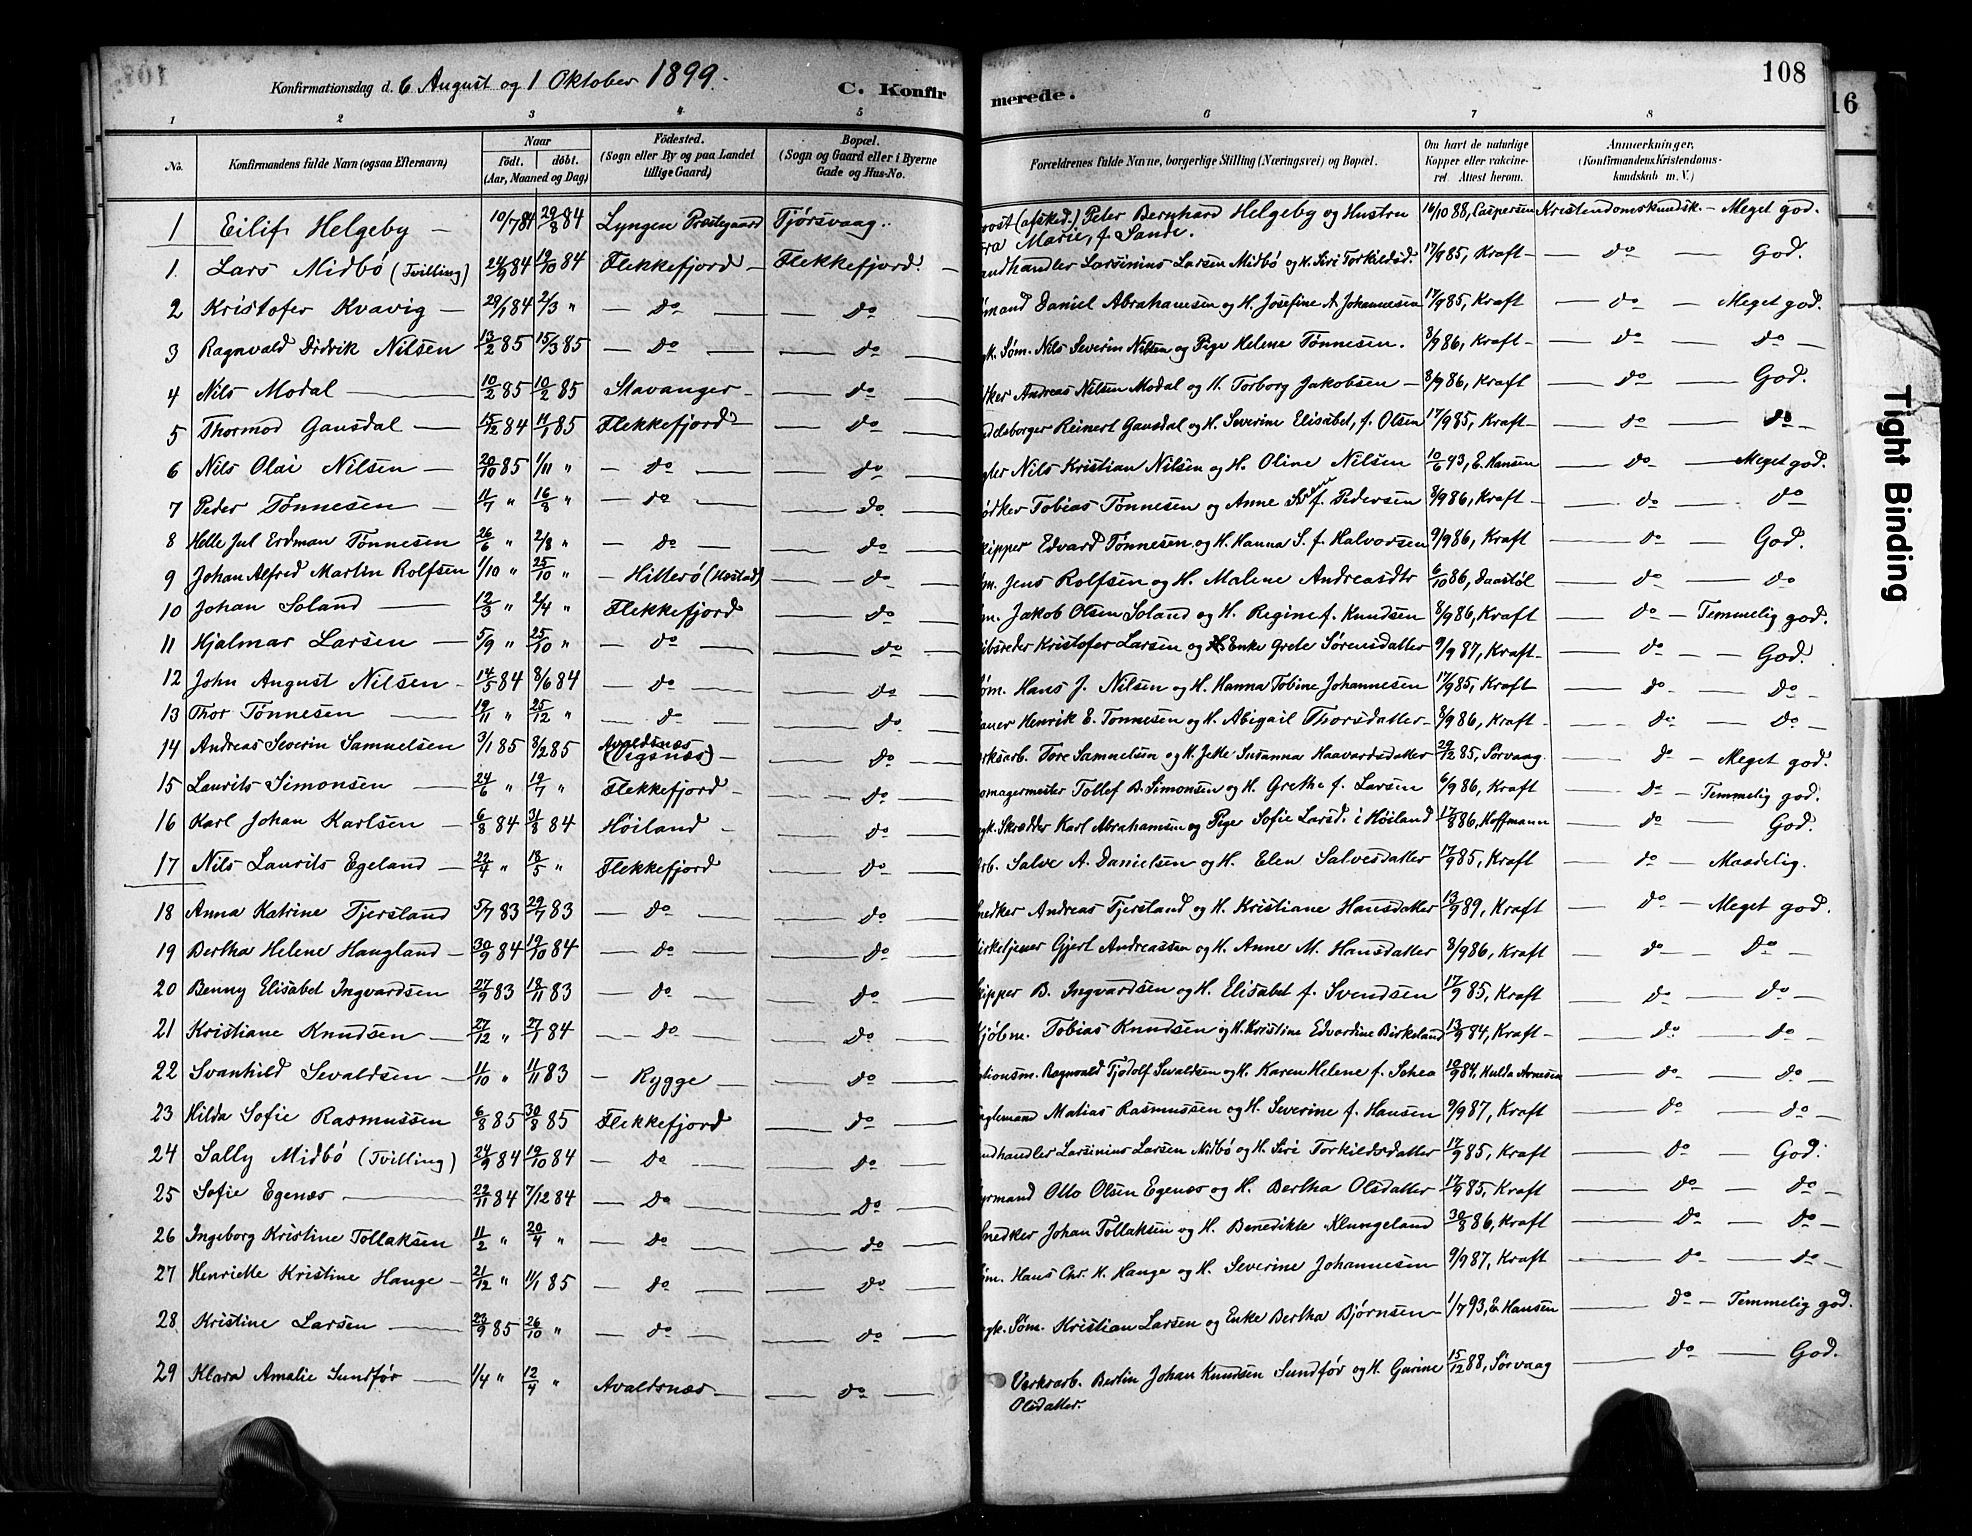 108
16
Tight Binding
Konfirmationsdag d. 6 August og 1 Oktober 1899.
C. Konfir merede.
1 2 3 4 5 6 7 8
No. Konfirmandens fulde Navn (ogsaa Efternavn) Naar født. døbt. (Aar, Maaned og Dag) Fødested. (Sogn eller By og paa Landet tillige Gaard) Bopæl. (Sogn og Gaard eller i Byerne Gade og Hus-No. Forældrenes fulde Navne, borgerlige Stilling (Næringsvei) og Bopæl. Om havt de naturlige Kopper eller vakcineret. Attest herom. Anmærkninger, (Konfirmandens Kristendomskundskab m. V.)
1 Eilif Helgeby — 10/7 84 29/8 84 Lyngen Præstegaard Tjörsvaag. rost (afsked.) Peter Bernhard Helgeby og Hustru 16/10 88, Caspersen Kristendomskundsk. — Meget god.
Marie, f. Sande.
1. Lars Midbö (Tvilling) 24/9 84 19/10 84 Flekkefjord — Flekkefjord. — andhandler Larsinius Larsen Midbö og H. Siri Torkildsd. 17/9 85, Kraft — do — God.
2 Kristofer Kvavig — 29/1 84 2/3 " — do — do — mand Daniel Abrahamsen og H. Josefine A. Johannesen 17/9 85, Kraft — do — Meget god.
3 Ragnvald Didrik Nilsen 13/2 85 15/3 85 — do — do — gk. Søm. Nils Severin Nilsen og Pige Helene Tønnesen. 8/9 86, Kraft — do — do —
4 Nils Modal — 10/2 85 10/2 85 Stavanger — do — ker Andreas Nilsen Modal og H. Torborg Jakobsen — 8/9 86, Kraft — do — God.
5 Thormod Gausdal — 15/12 84 11/1 85 Flekkefjord — do — delsborger Reinert Gausdal og H. Severine Elisabet, f. Olsen 17/9 85, Kraft — do — do —
6 Nils Olai Nilsen — 20/10 85 1/11 " — do — do — Nils Kristian Nilsen og H. Oline Nilsen 10/6 93, E. Hansen — do — Meget god.
7 Peder Tønnesen — 11/7 " 16/8 " — do — do — ödker Tobias Tønnesen og Anne f. Pedersen 8/9 86, Kraft — do — do
8 Helle Jul Erdman Tønnesen 26/6 " 2/8 " — do — do — kipper Edvard Tønnesen og H. Hanna S. f. Halvorsen 9/9 86, Kraft — do — God.
9 Johan Alfred Martin Rolfsen 1/10 " 25/10 " — Hitterö — do — m. Jens Rolfsen og H. Malene Andreasdtr 6/10 86, Daastöl — do — do
10 Johan Soland — 12/3 " 2/4 " Flekkefjord — do — m. Jakob Olsen Soland og H. Regine f. Knudsen 8/9 86, Kraft — do — Temmelig god.
11 Hjalmar Larsen — 5/9 " 25/10 " — do — do — ibsreder Kristofer Larsen og Enke Grete Sørensdatter 9/9 87, Kraft — do — God.
12 John August Nilsen — 14/5 84 8/6 84 — do — do — øm. Hans J. Nilsen og H. Hanna Tobine Johannesen 17/9 85, Kraft — do — do —
13 Thor Tønnesen — 19/11 " 25/12 " — do — do — Henrik E. Tønnesen og H. Abigail Thorsdatter — 8/9 86, Kraft — do — do —
14 Andreas Severin Samuelsen 3/1 85 8/2 85 Avaldsnæs (Vigsnæs) — do — rksarb. Tore Samuelsen og H. Jette Susanna Haavardsdatter 29/12 85, Sørvaag — do — Meget god.
15 Laurits Simonsen — 24/6 " 19/7 " Flekkefjord — do — omagermester Tollef B. Simonsen og H. Grethe f. Larsen 6/9 86, Kraft — do — Temmelig god.
16 Karl Johan Karlsen — 6/8 84 31/8 84 Høiland — do — gk. Skrædder Karl Abrahamsen og Pige Sofie Larsd. i Høiland 17/8 86, Hoffmann — do — God.
17 Nils Laurits Egeland — 22/4 " 18/5 " Flekkefjord — do — rb. Salve A. Danielsen og H. Elen Salvesdatter 17/9 85, Kraft — do — Maadelig.
18 Anna Katrine Tjersland 5/7 83 29/7 83 — do — do — nedker Andreas Tjersland og H. Kristiane Hansdatter 13/9 89, Kraft — do — Meget god.
19 Bertha Helene Haugland — 30/9 84 19/10 84 — do — do — irketjener Gjert Andreassen og H. Anne M. Hansdatter 8/9 86, Kraft — do — do —
20 Benny Elisabet Ingvardsen 27/9 83 18/11 83 — do — do — kipper B. Ingvardsen og H. Elisabet f. Svendsen 17/9 85, Kraft — do — do —
21 Kristiane Knudsen — 27/12 " 27/1 84 — do — do — jöbm. Tobias Knudsen og H. Kristine Edvardine Birkeland 13/9 84, Kraft — do — do —
22 Svanhild Sevaldsen — 11/10 " 11/11 83 — Rygge — do — tionsm. Ragnvald Tjodolf Sevaldsen og H. Karen Helene f. Schea 10/9 84, Hulda Arnesen — do — do —
23 Hilda Sofie Rasmussen 6/8 85 30/8 85 Flekkefjord — do — glemand Matias Rasmussen og H. Severine f. Hansen 9/9 87, Kraft — do — do —
24 Sally Midbö (Tvilling) 24/9 84 19/10 84 — do — do — ndhandler Larsinius Larsen Midbö og H. Siri Torkildsdatter 17/9 85, Kraft — do — God.
25 Sofie Egenæs — 22/11 84 7/12 84 — do — do — yrmand Otto Olsen Egenæs og H. Bertha Olsdatter 17/9 85, Kraft — do — do —
26 Ingeborg Kristine Tollaksen 11/2 " 20/4 " — do — do — nedker Johan Tollaksen og H. Benedikte Klungeland 30/8 86, Kraft — do — do —
27 Henriette Kristine Hauge — 21/12 " 11/1 85 — do — do — øm. Hans Chr. H. Hauge og H. Severine Johannesen 9/9 87, Kraft — do — do —
28 Kristine Larsen — 23/9 85 26/10 " — do — do — gk. Søm. Kristian Larsen og Enke Bertha Bjørnsen 1/7 93, E. Hansen — do — Temmelig god.
29 Klara Amalie Sundför — 1/4 " 12/4 " Avaldsnæs — do — Verksarb. Bertin Johan Knudsen Sundför og H. Gurine 15/12 88, Sørvaag — do — God.
Olsdatter.